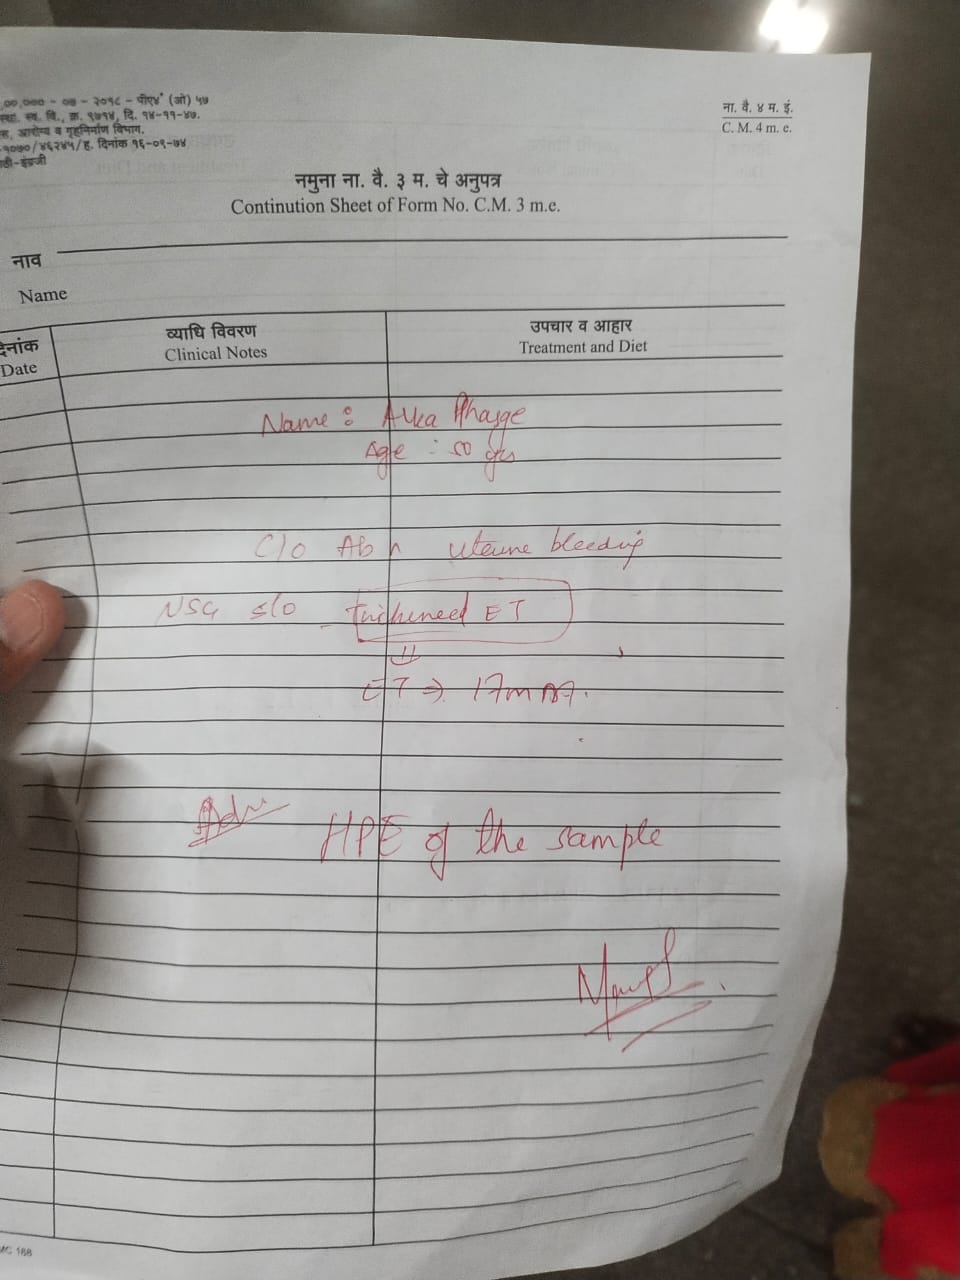 ,००,००० - ०७ - २०१८ - पीए४* (ओ) ५७
स्था. स्व. वि., क्र. ९७१४, दि. १४-११-४७.
स, आरोग्य व गृहनिर्माण विभाग.
१०७०/४६२४५/ह. दिनांक १६-०९-७४
ठी-इंग्रजी
ना. वै. ४ म. इं.
C. M. 4 m. e.
नमुना ना. वै. ३ म. चे अनुपत्र
Continution Sheet of Form No. C.M. 3 m.e.
नाव
Name
दिनांक
Date
व्याधि विवरण
Clinical Notes
उपचार व आहार
Treatment and Diet
Name : Alka
Age : 50 yrs
C/o Abn uterine bleeding
USG s/o - thickened ET
ET ⇒ 17mm.
Adv
HPE of the sample
MC 188